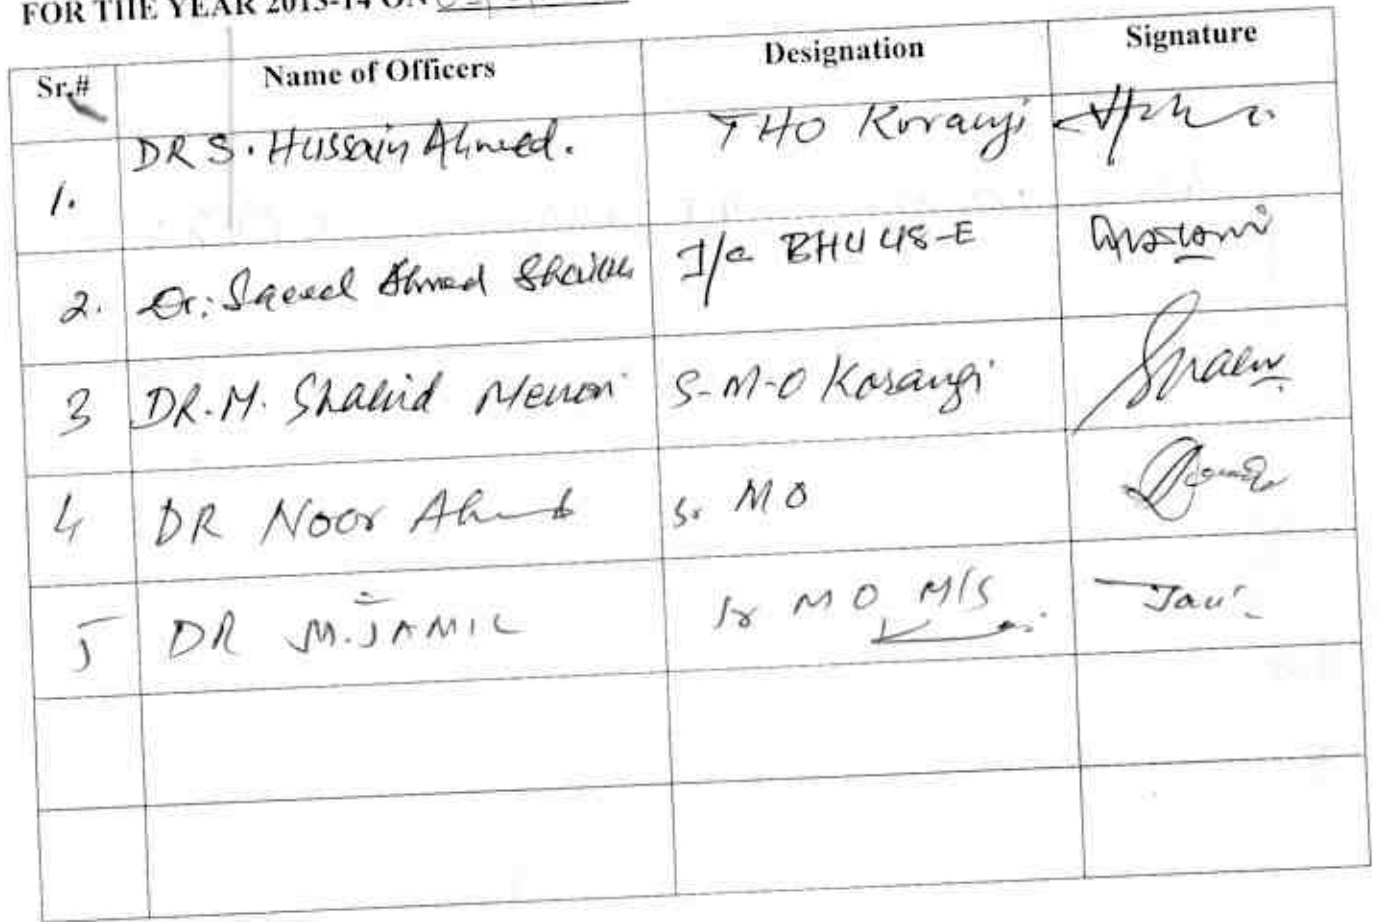 FOR THE YEAR 2013-14 ON
Sr.# Name of Officers Designation Signature
1. DR S. Hussain Ahmed. THO Korangi
2. Dr: Saeed Ahmed Shaikh I/c BHU 48-E
3 DR. M. Shahid Memon S-M-O Korangi
4 DR Noor Ahmed Sr MO
5 DR M. JAMIL Sr MO M/S